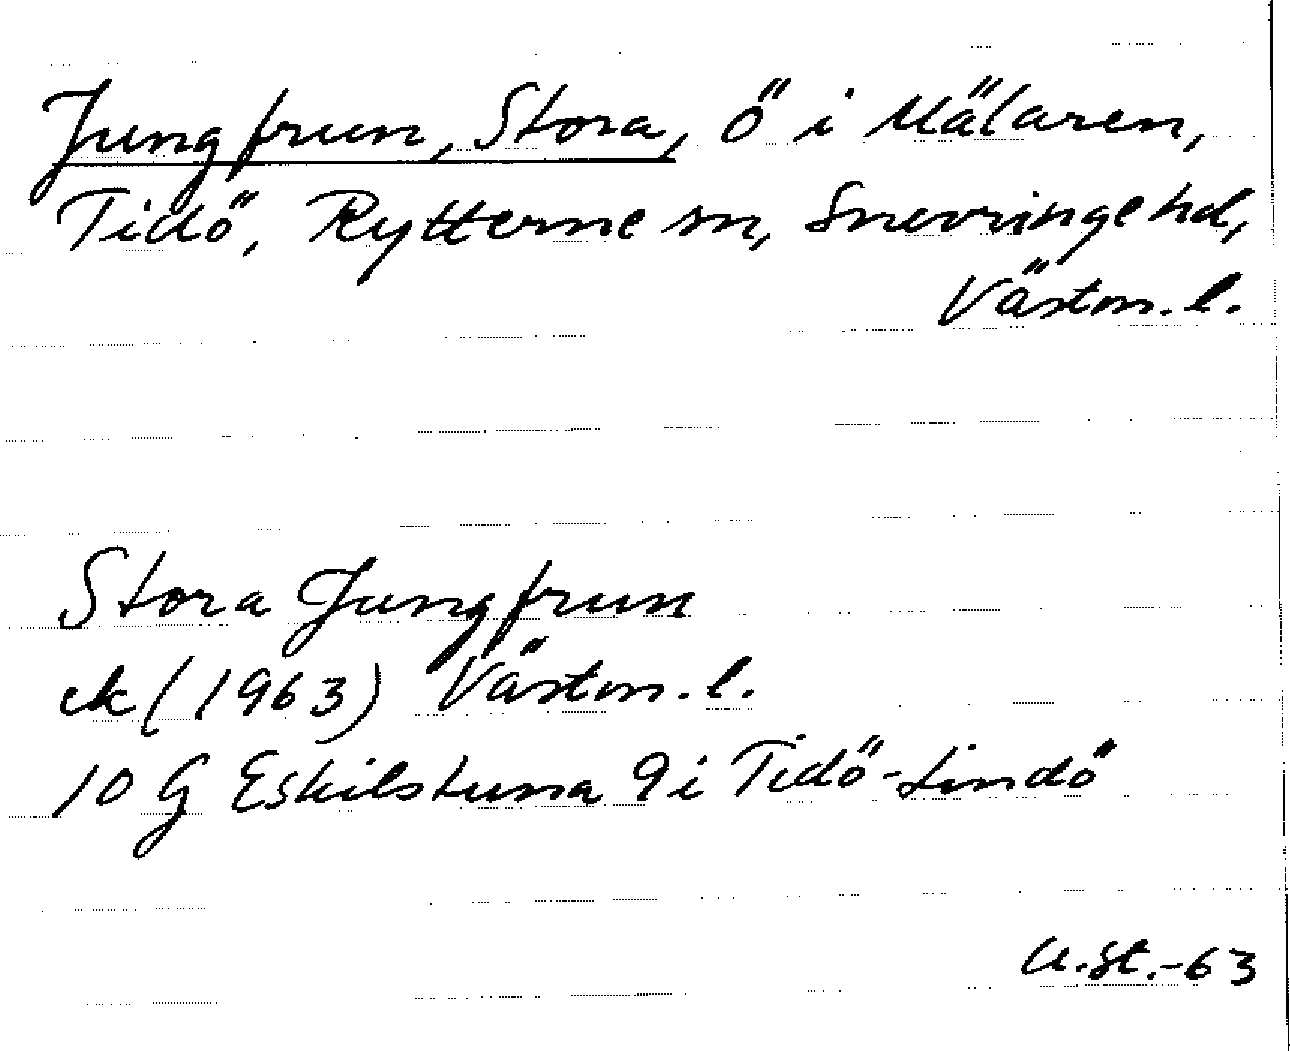 Jungfrun, Stora, ö i Mälaren,
Tidö, Rytterne sn, Snevringe hd,
Västm. l.
Stora Jungfrun
ek (1963) Västm. l.
10 G Eskilstuna 9 i Tidö-Lindö
U.St.-63